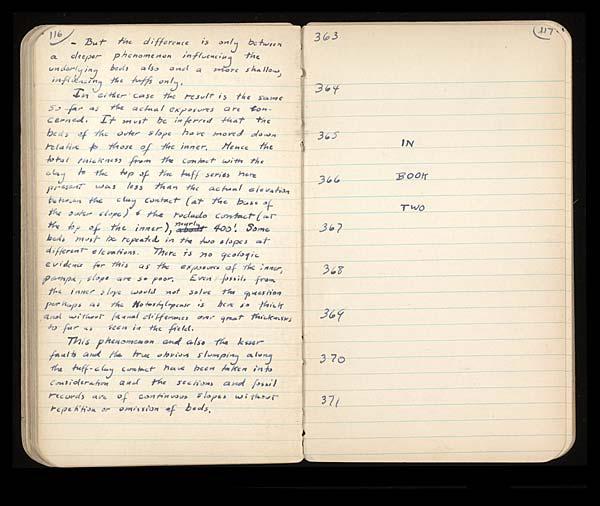 116
- But the difference is only between
a deeper phenomenon influencing the
underlying beds also and a more shallow,
influencing the tuffs only.
In either case the result is the same
so far as the actual exposures are con-
cerned. It must be inferred that the
beds of the outer slope have moved down
relative to those of the inner. Hence the
total thickness from the contact with the
clay to the top of the tuff series here
present was less than the actual elevation
between the clay contact (at the base of
the outer slope) & the rodado contact (at
the top of the inner), nearly about 400'. Some
beds must be repeated in the two slopes at
different elevations. There is no geologic
evidence for this as the exposures of the inner,
pampa, slope are so poor. Even fossils from
the inner slope would not solve the question
perhaps as the Notostylopense is here so thick
and without faunal differences over great thicknesses
so far as seen in the field.
This phenomenon and also the lesser
faults and the true obvious slumping along
the tuff-clay contact have been taken into
consideration and the sections and fossil
records are of continuous slopes without
repetition or omission of beds.
117
363
364
365
IN
366
BOOK
TWO
367
368
369
370
371